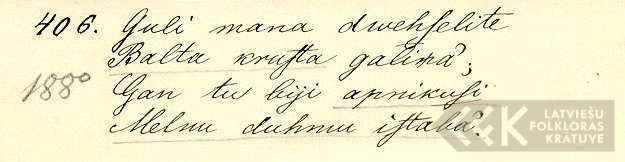 406. Guli mana dwehſelite
Balta kruſta galiņâ;
1880
Gan tu biji apnikuſi
Melnu duhmu iſtabâ.
LATVIEŠU
FOLKLORAS
KRĀTUVE